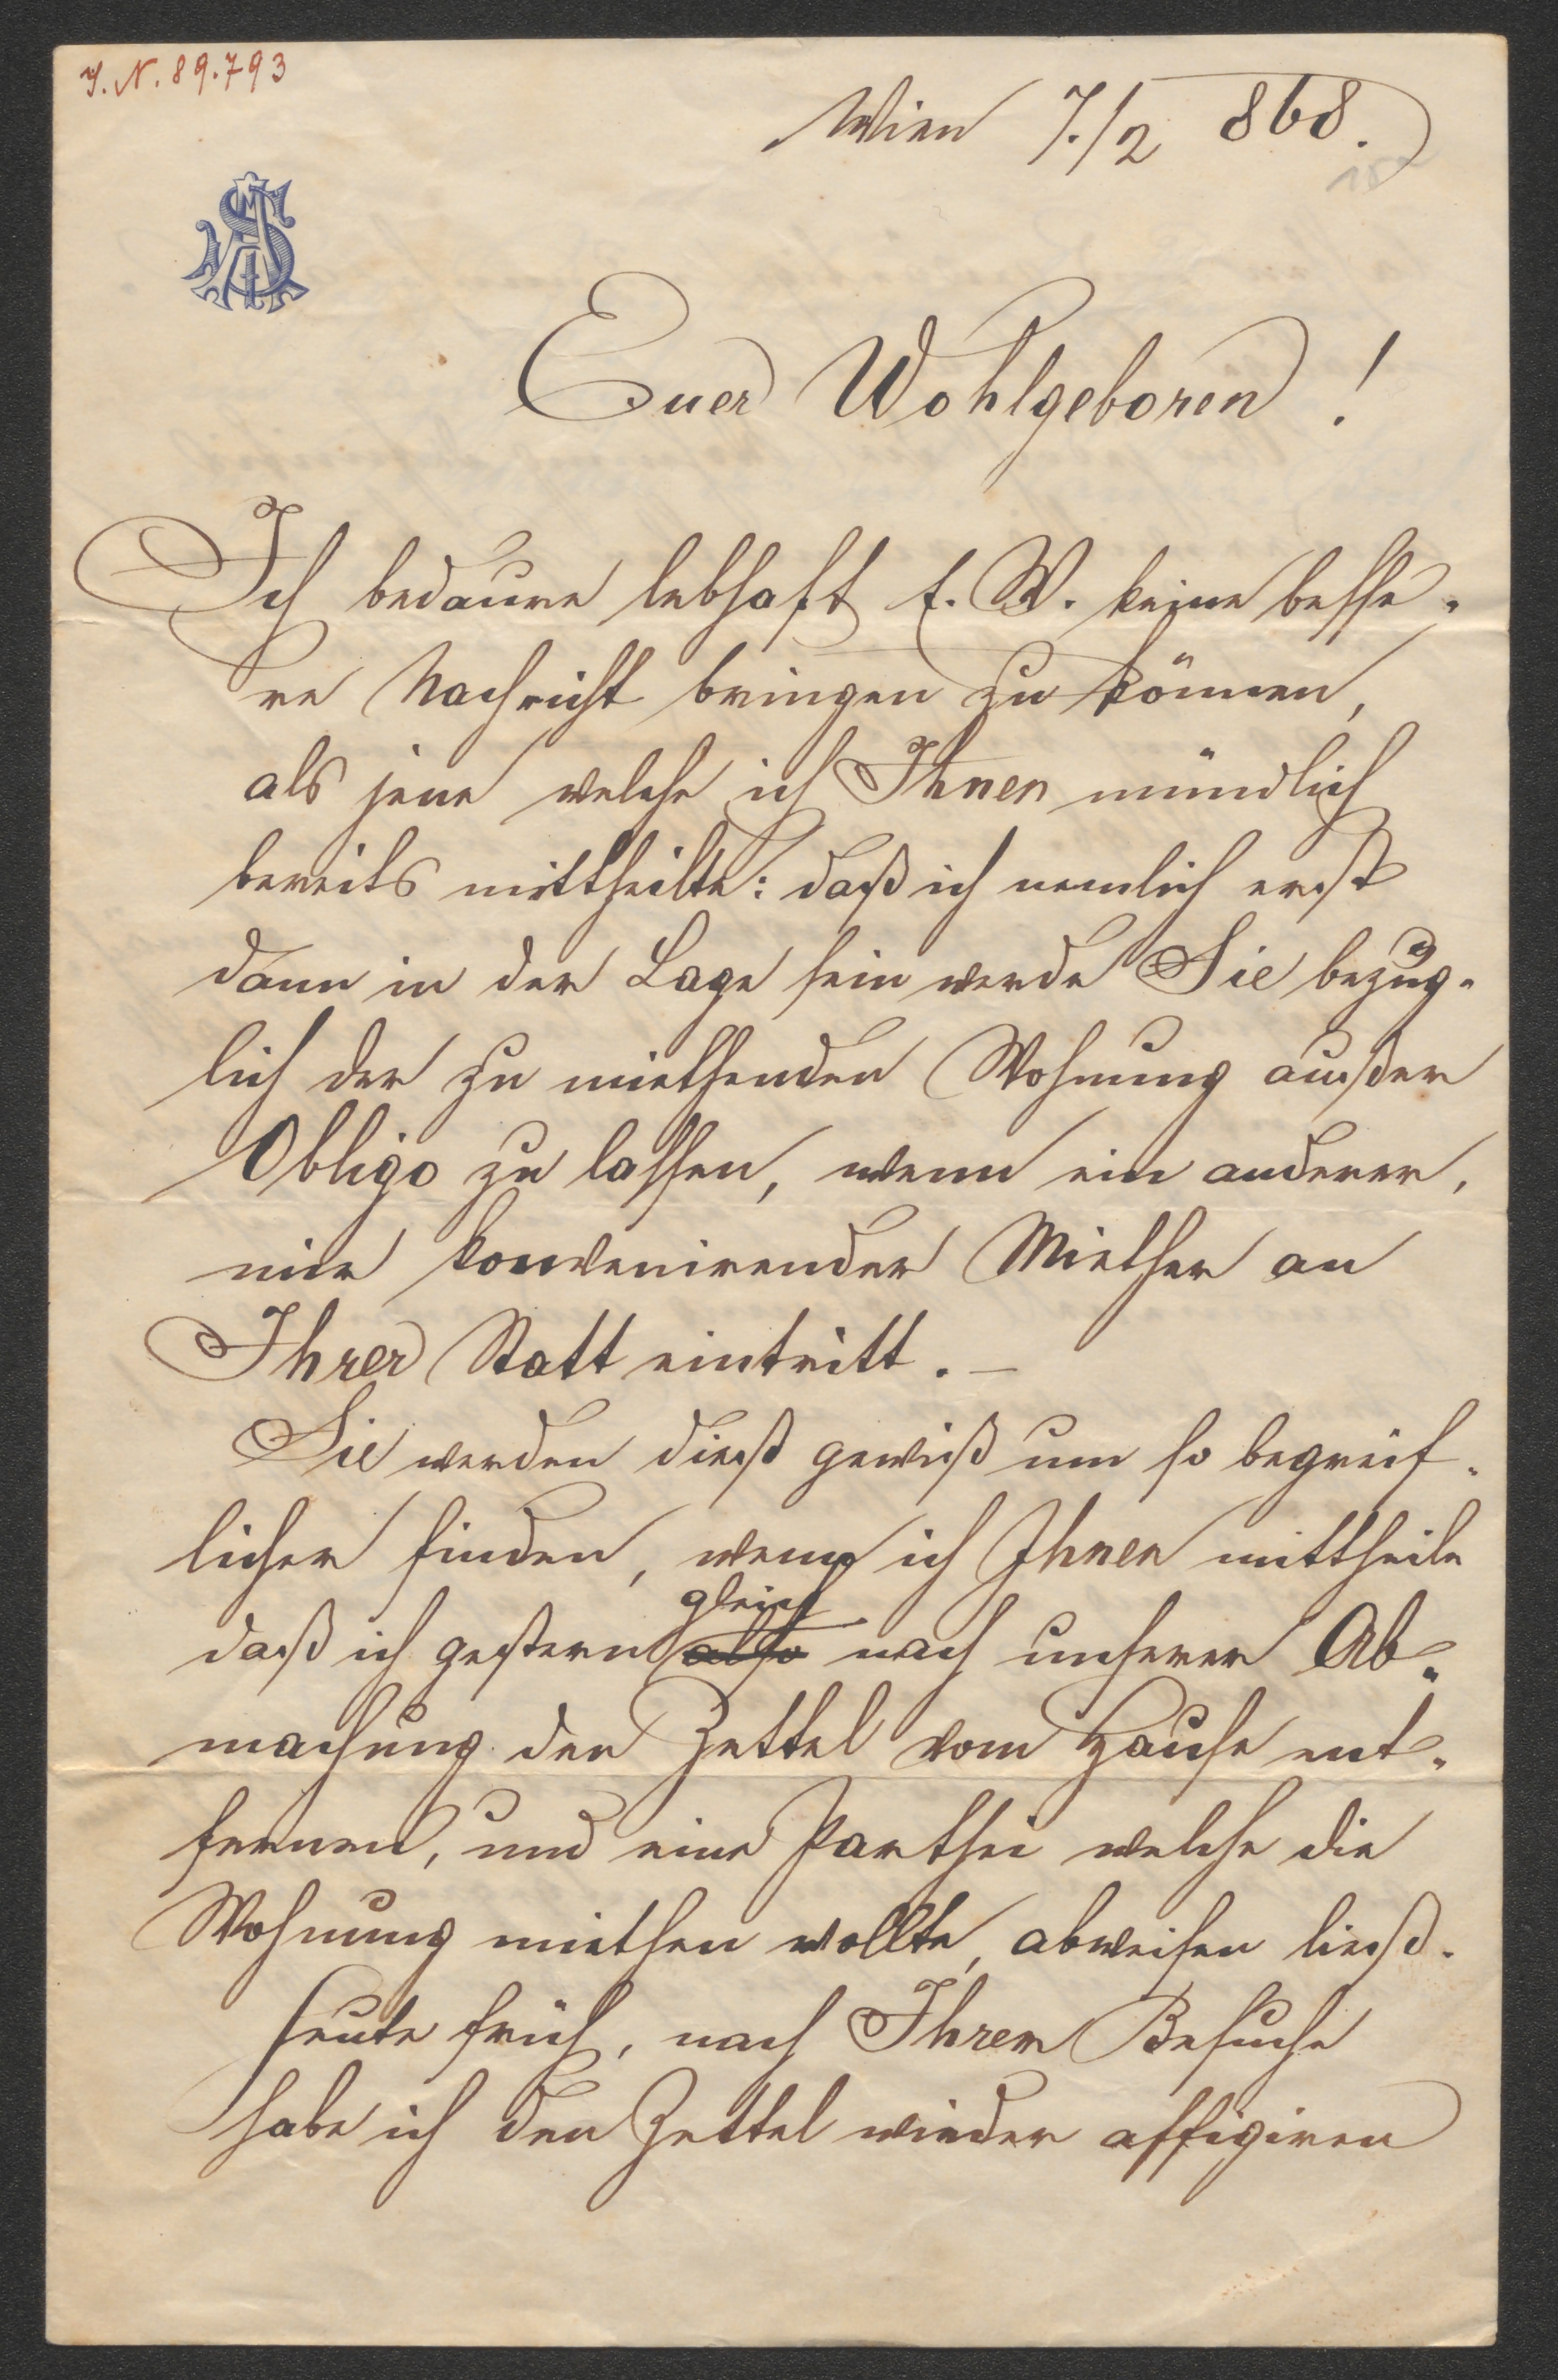 I. N. 89.793
Wien 7./2 868.
Euer Wohlgeboren!
Ich bedaure lebhaft E. W. keine besse-
re Nachricht bringen zu können,
als jene welche ich Ihnen mündlich
bereits mittheilte: daß ich nemlich erst
dann in der Lage sein werde Sie bezüg-
lich der zu miethenden Wohnung außer
Obligo zu lassen, wenn ein anderer,
mir konvenirender Miether an
Ihrer Statt eintritt. –
Sie werden dieß gewiß um so begreif-
licher finden, wenn ich Ihnen mittheile
gleich
daß ich gestern also nach unserer Ab-
machung den Zettel vom Hause ent-
fernen, und eine Parthei welche die
Wohnung miethen wollte, abweisen ließ.
Heute früh, nach Ihrem Besuche
habe ich den Zettel wieder affigiren